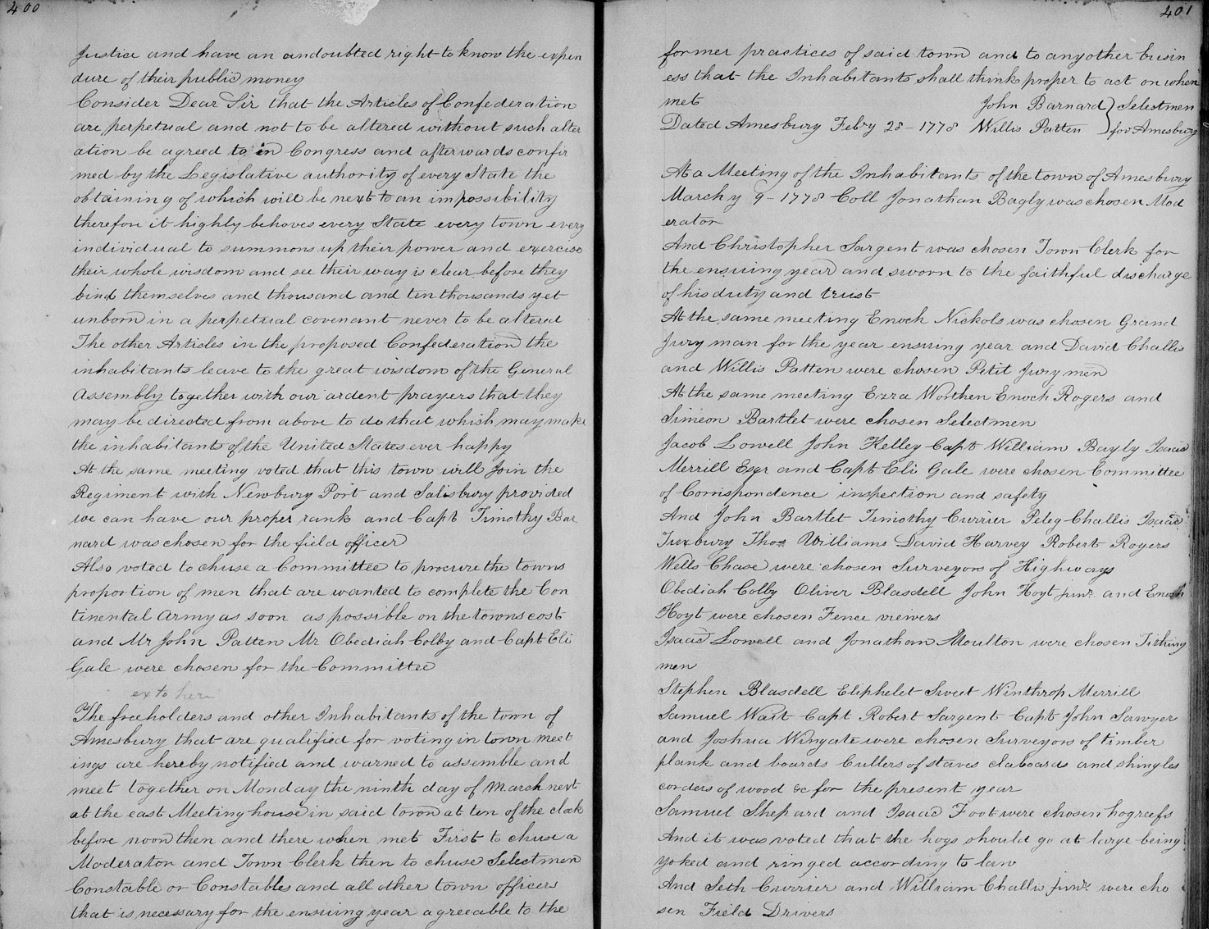 400
Justice and have an undoubted right to know the expen
dure of their public money
Consider Dear Sir that the Articles of Confederation
are perpetual and not to be altered without such alter
ation be agreed to in Congress and afterwards confir
med by the Legislative authority of every State the
obtaining of which will be next to an impossibility
therefore it highly behoves every State every town every
individual to summons up their power and exercise
their whole wisdom and see their way is clear before they
bind themselves and thousand and ten thousands yet
unborn in a perpetual covenant never to be altered
The other Articles in the proposed Confederation the
inhabitants leave to the great wisdom of the General
Assembly together with our ardent prayers that they
may be directed from above to do that which may make
the inhabitants of the United States ever happy
At the same meeting voted that this town will Join the
Regiment with Newbury Port and Salisbury provided
we can have our proper rank and Capt Timothy Bar
nard was chosen for the field officer
Also voted to chuse a Committee to procure the towns
proportion of men that are wanted to complete the Con
tinental Army as soon as possible on the towns cost
and Mr John Patten Mr Obediah Colby and Capt Eli
Gale were chosen for the Committee
ex to here
The freeholders and other Inhabitants of the town of
Amesbury that are qualified for voting in town meet
ings are hereby notified and warned to assemble and
meet together on Monday the ninth day of March next
at the east Meeting house in said town at ten of the clock
before noon then and there when met First to chuse a
Moderator and Town Clerk then to chuse Selectmen
Constable or Constables and all other town officers
that is necessary for the ensuing year agreeable to the
401
former practices of said town and to any other busin
ess that the Inhabitants shall think proper to act on when
met John Barnard } Selectmen
Dated Amesbury Febry 28 - 1778 Willis Patten } for Amesbury
At a Meeting of the Inhabitants of the town of Amesbury
March y 9 - 1778 Coll Jonathan Bagly was chosen Mod
erator
And Christopher Sargent was chosen Town Clerk for
the ensuing year and sworn to the faithful discharge
of his duty and trust
At the same meeting Enoch Nickols was chosen Grand
Jury man for the year ensuing year and David Challis
and Willis Patten were chosen Petit Jury men
At the same meeting Ezra Worthen Enoch Rogers and
Simeon Bartlet were chosen Selectmen
Jacob Lowell John Kelley Capt William Bayly Isaac
Merrill Esqr and Capt Eli Gale were chosen Committee
of Corrispondence inspection and safety
And John Bartlet Timothy Currier Peleg Challis Isaac
Tuxbury Thos Williams David Harvey Robert Rogers
Wells Chase were chosen Surveyors of Highways
Obediah Colby Oliver Blasdell John Hoyt junr and Enoch
Hoyt were chosen Fence viewers
Isaac Lowell and Jonathan Moulton were chosen Tithing
men
Stephen Blasdell Eliphelet Sweet Winthrop Merrill
Samuel Wast Capt Robert Sargent Capt John Sawyer
and Joshua Wingate were chosen Surveyors of timber
plank and boards Cullers of staves claboards and shingles
corders of wood &c for the present year
Samuel Shepard and Isaac Foot were chosen hogreefs
And it was voted that the hogs should go at large being
yoked and ringed according to law
And Seth Currier and William Challis junr were cho
sen Field Drivers